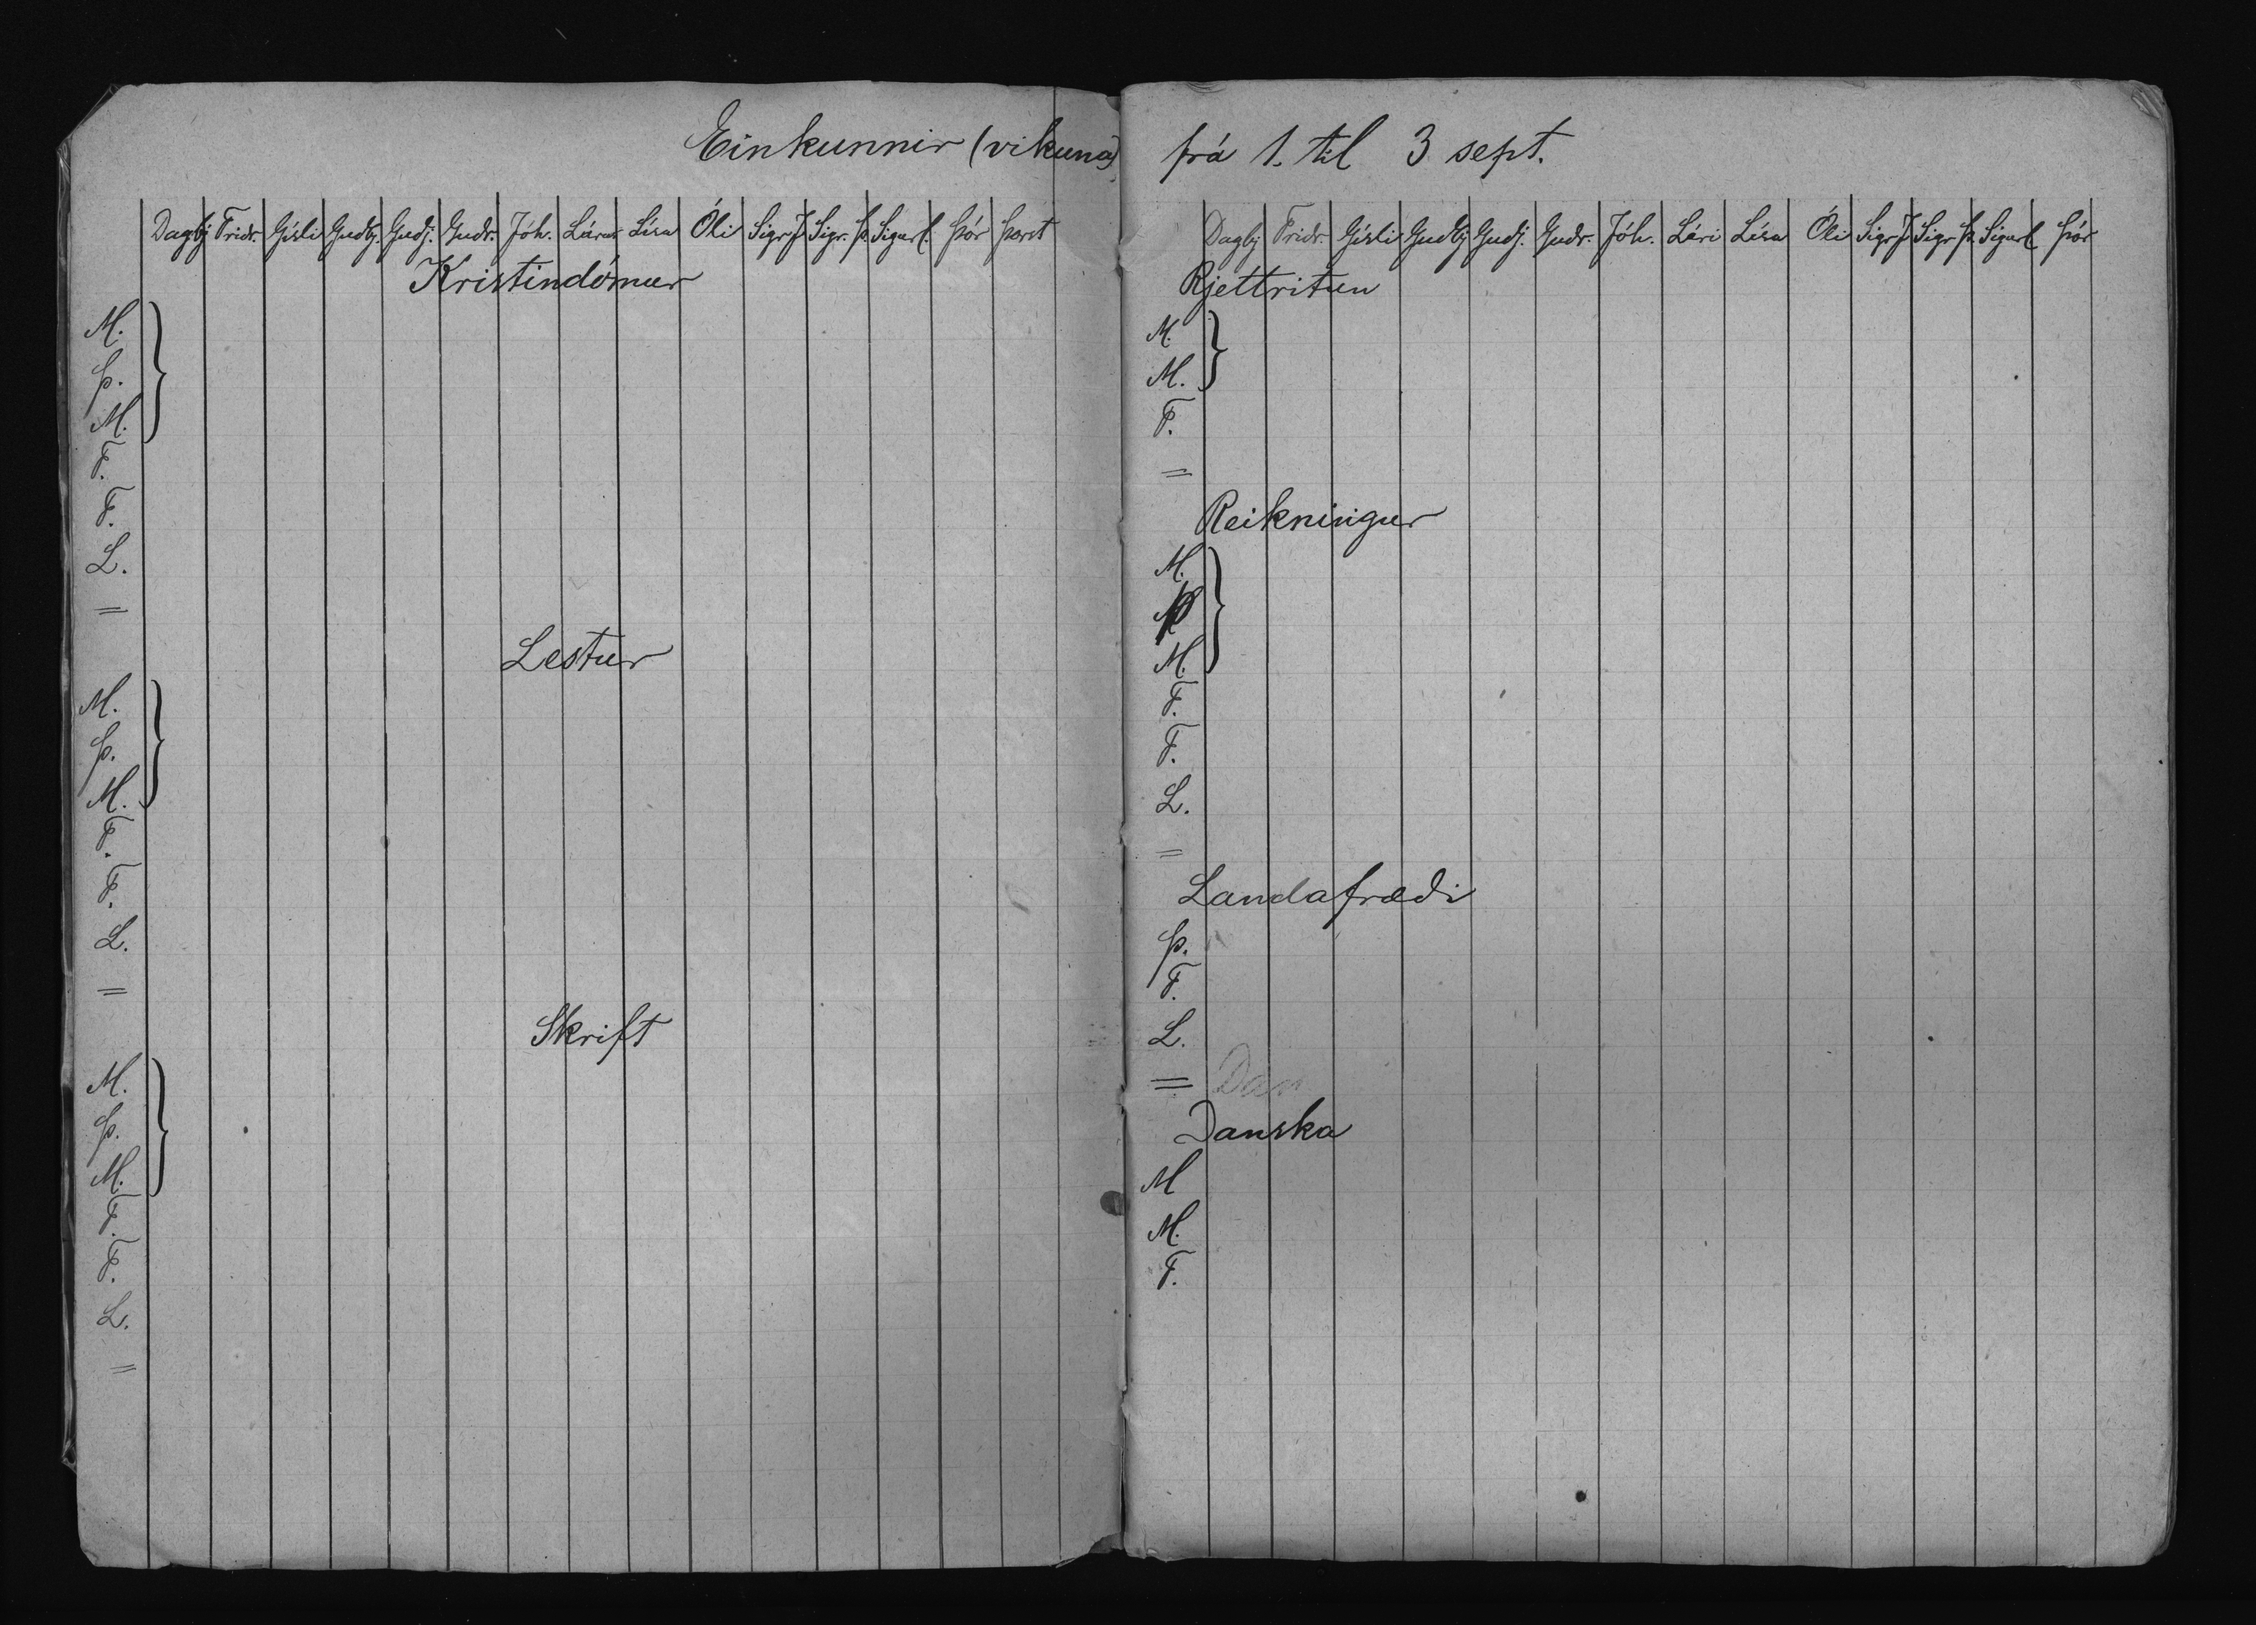 Einkunnir (vikuna)
Dagbj Fridr. Gísli Gudbj. Gudj. Gudr. Jóh. Lárus Lísa Óli Sigr J Sigr. Þ. Sigurl. Þór Þorst
Kristindómur
M.
Þ.
M.
F.
F.
L.
=
Lestur
M.
Þ.
M.
F.
F.
L.
=
Skrift
M.
Þ.
M.
F.
F.
L.
=
frá 1. til 3 sept.
Dagbj Fridr. Gísli Gudbj Gudj. Gudr. Jóh. Lári Lísa Óli Sigr J Sigr Þ. Sigurl Þór
Rjettritun
M.
M.
F.
=
Reikningur
M.
Þ
M.
F.
F.
L.
=
Landafrædi
Þ.
F.
L.
= Dan
Danska
M
M.
F.